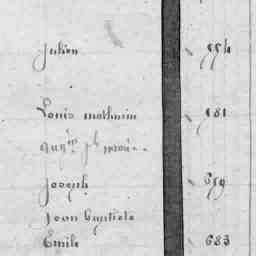 Julien 554
Louis mathurin 581
Joseph 659
Jean Baptiste
Emile 683